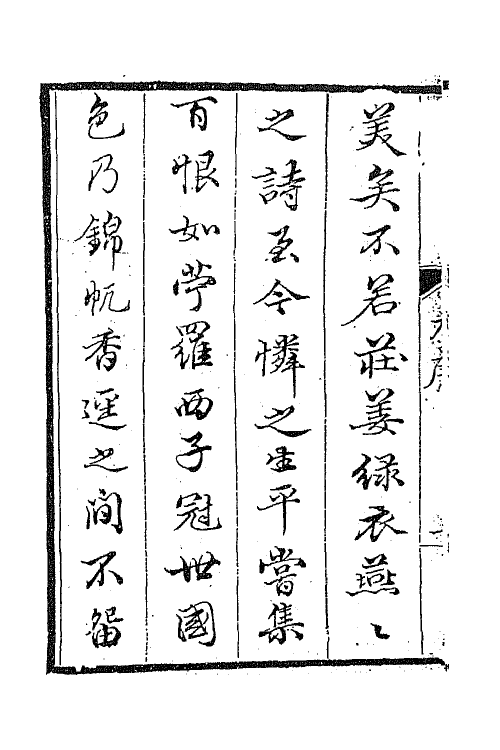 美矣不若莊姜綠衣燕〻
之詩至今憐之生平嘗集
百恨如苧羅西子冠世國
色乃錦帆香逕之間不留